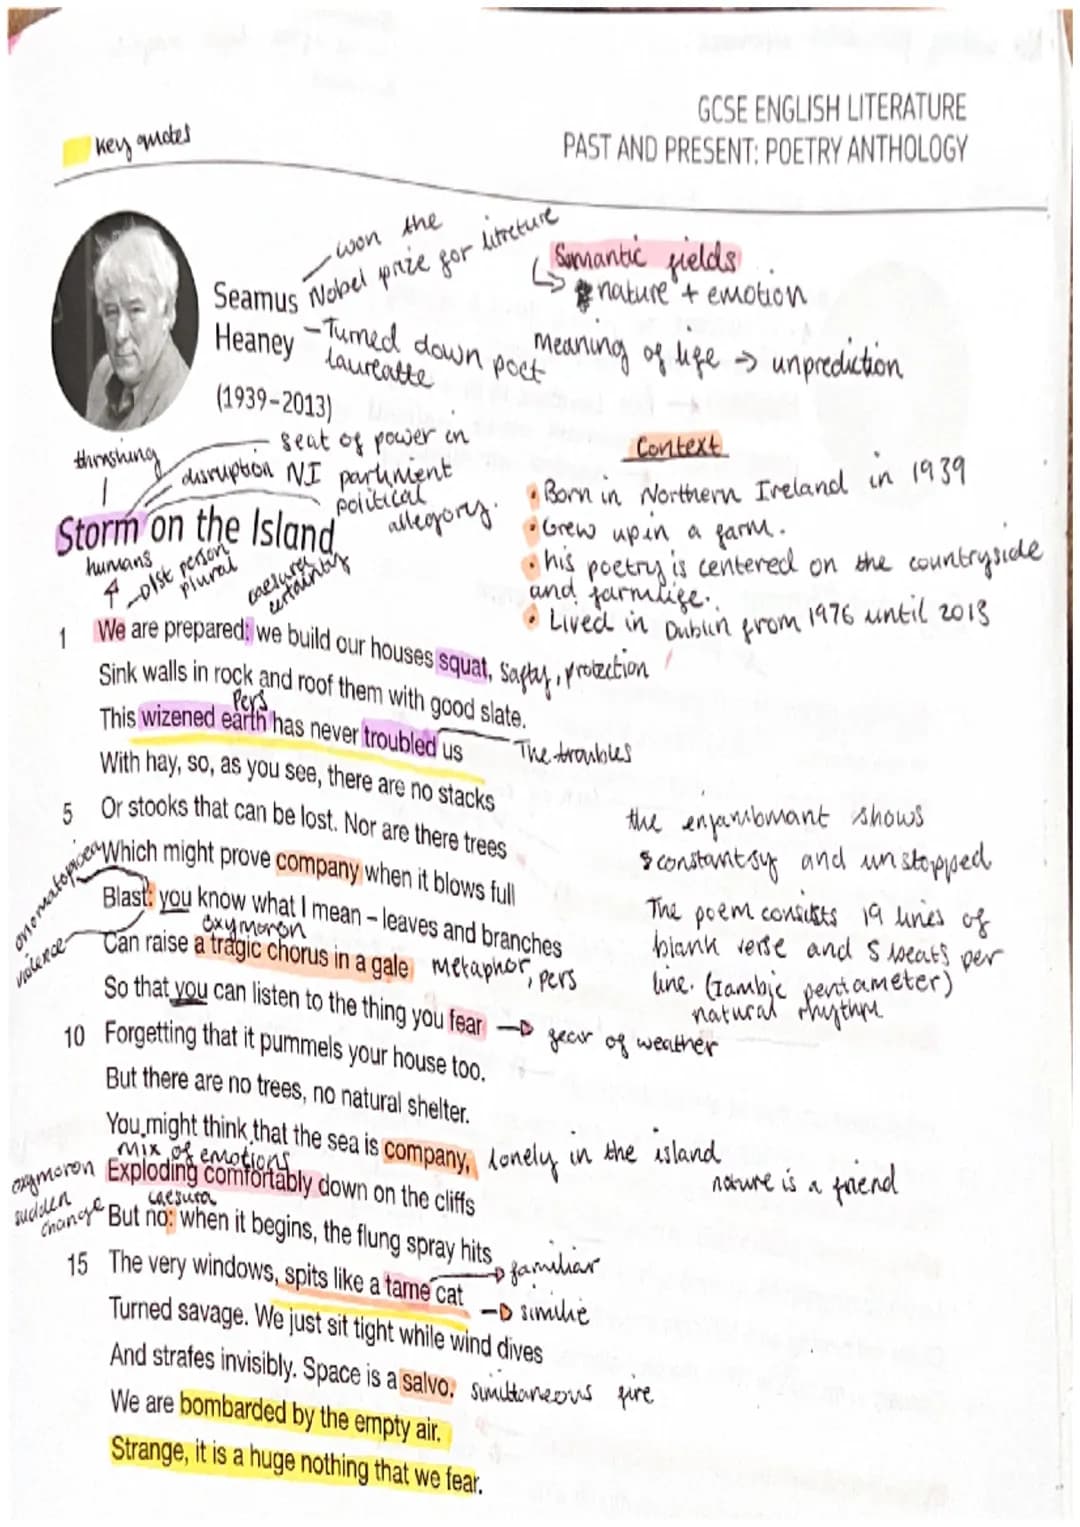 GCSE ENGLISH LITERATURE
PAST AND PRESENT: POETRY ANTHOLOGY
key quotes
Seamus
Heaney
(1939–2013)
won the
Nobel prize for litreture
– Turned down poet
laureatte
Semantic fields
nature + emotion
meaning of life → unprediction
thrashing
disruption
seat of power in
NI parliment
political
allegory.
Storm on the Island
humans
1st person
plural
caesura
certainty
Context
• Born in Northern Ireland in 1939
• Grew up in a farm.
• his poetry is centered on the countryside
and farmlife.
• Lived in Dublin from 1976 until 2013
1 We are prepared: we build our houses squat,
safty, protection
Sink walls in rock and roof them with good slate.
Pers
This wizened earth has never troubled us
The troubles
With hay, so, as you see, there are no stacks
5 Or stooks that can be lost. Nor are there trees
Which might prove company when it blows full
onomatopoeia
Blast: you know what I mean – leaves and branches
violence
oxymoron
Can raise a tragic chorus in a gale
metaphor, pers
So that you can listen to the thing you fear
→ fear of weather
10 Forgetting that it pummels your house too.
But there are no trees, no natural shelter.
You might think that the sea is company,
lonely in the island
nature is a friend
mix of emotions
oxymoron
Exploding comfortably down on the cliffs
sudden
change
caesura
But no: when it begins, the flung spray hits
15 The very windows, spits like a tame cat
→ familiar
→ similie
Turned savage. We just sit tight while wind dives
And strafes invisibly. Space is a salvo.
simultaneous fire
We are bombarded by the empty air.
Strange, it is a huge nothing that we fear.
the enjambmant shows
constantsy and unstopped
The poem consists 19 lines of
blank verse and 5 beats per
line. (Iambic pentameter)
natural rhythm